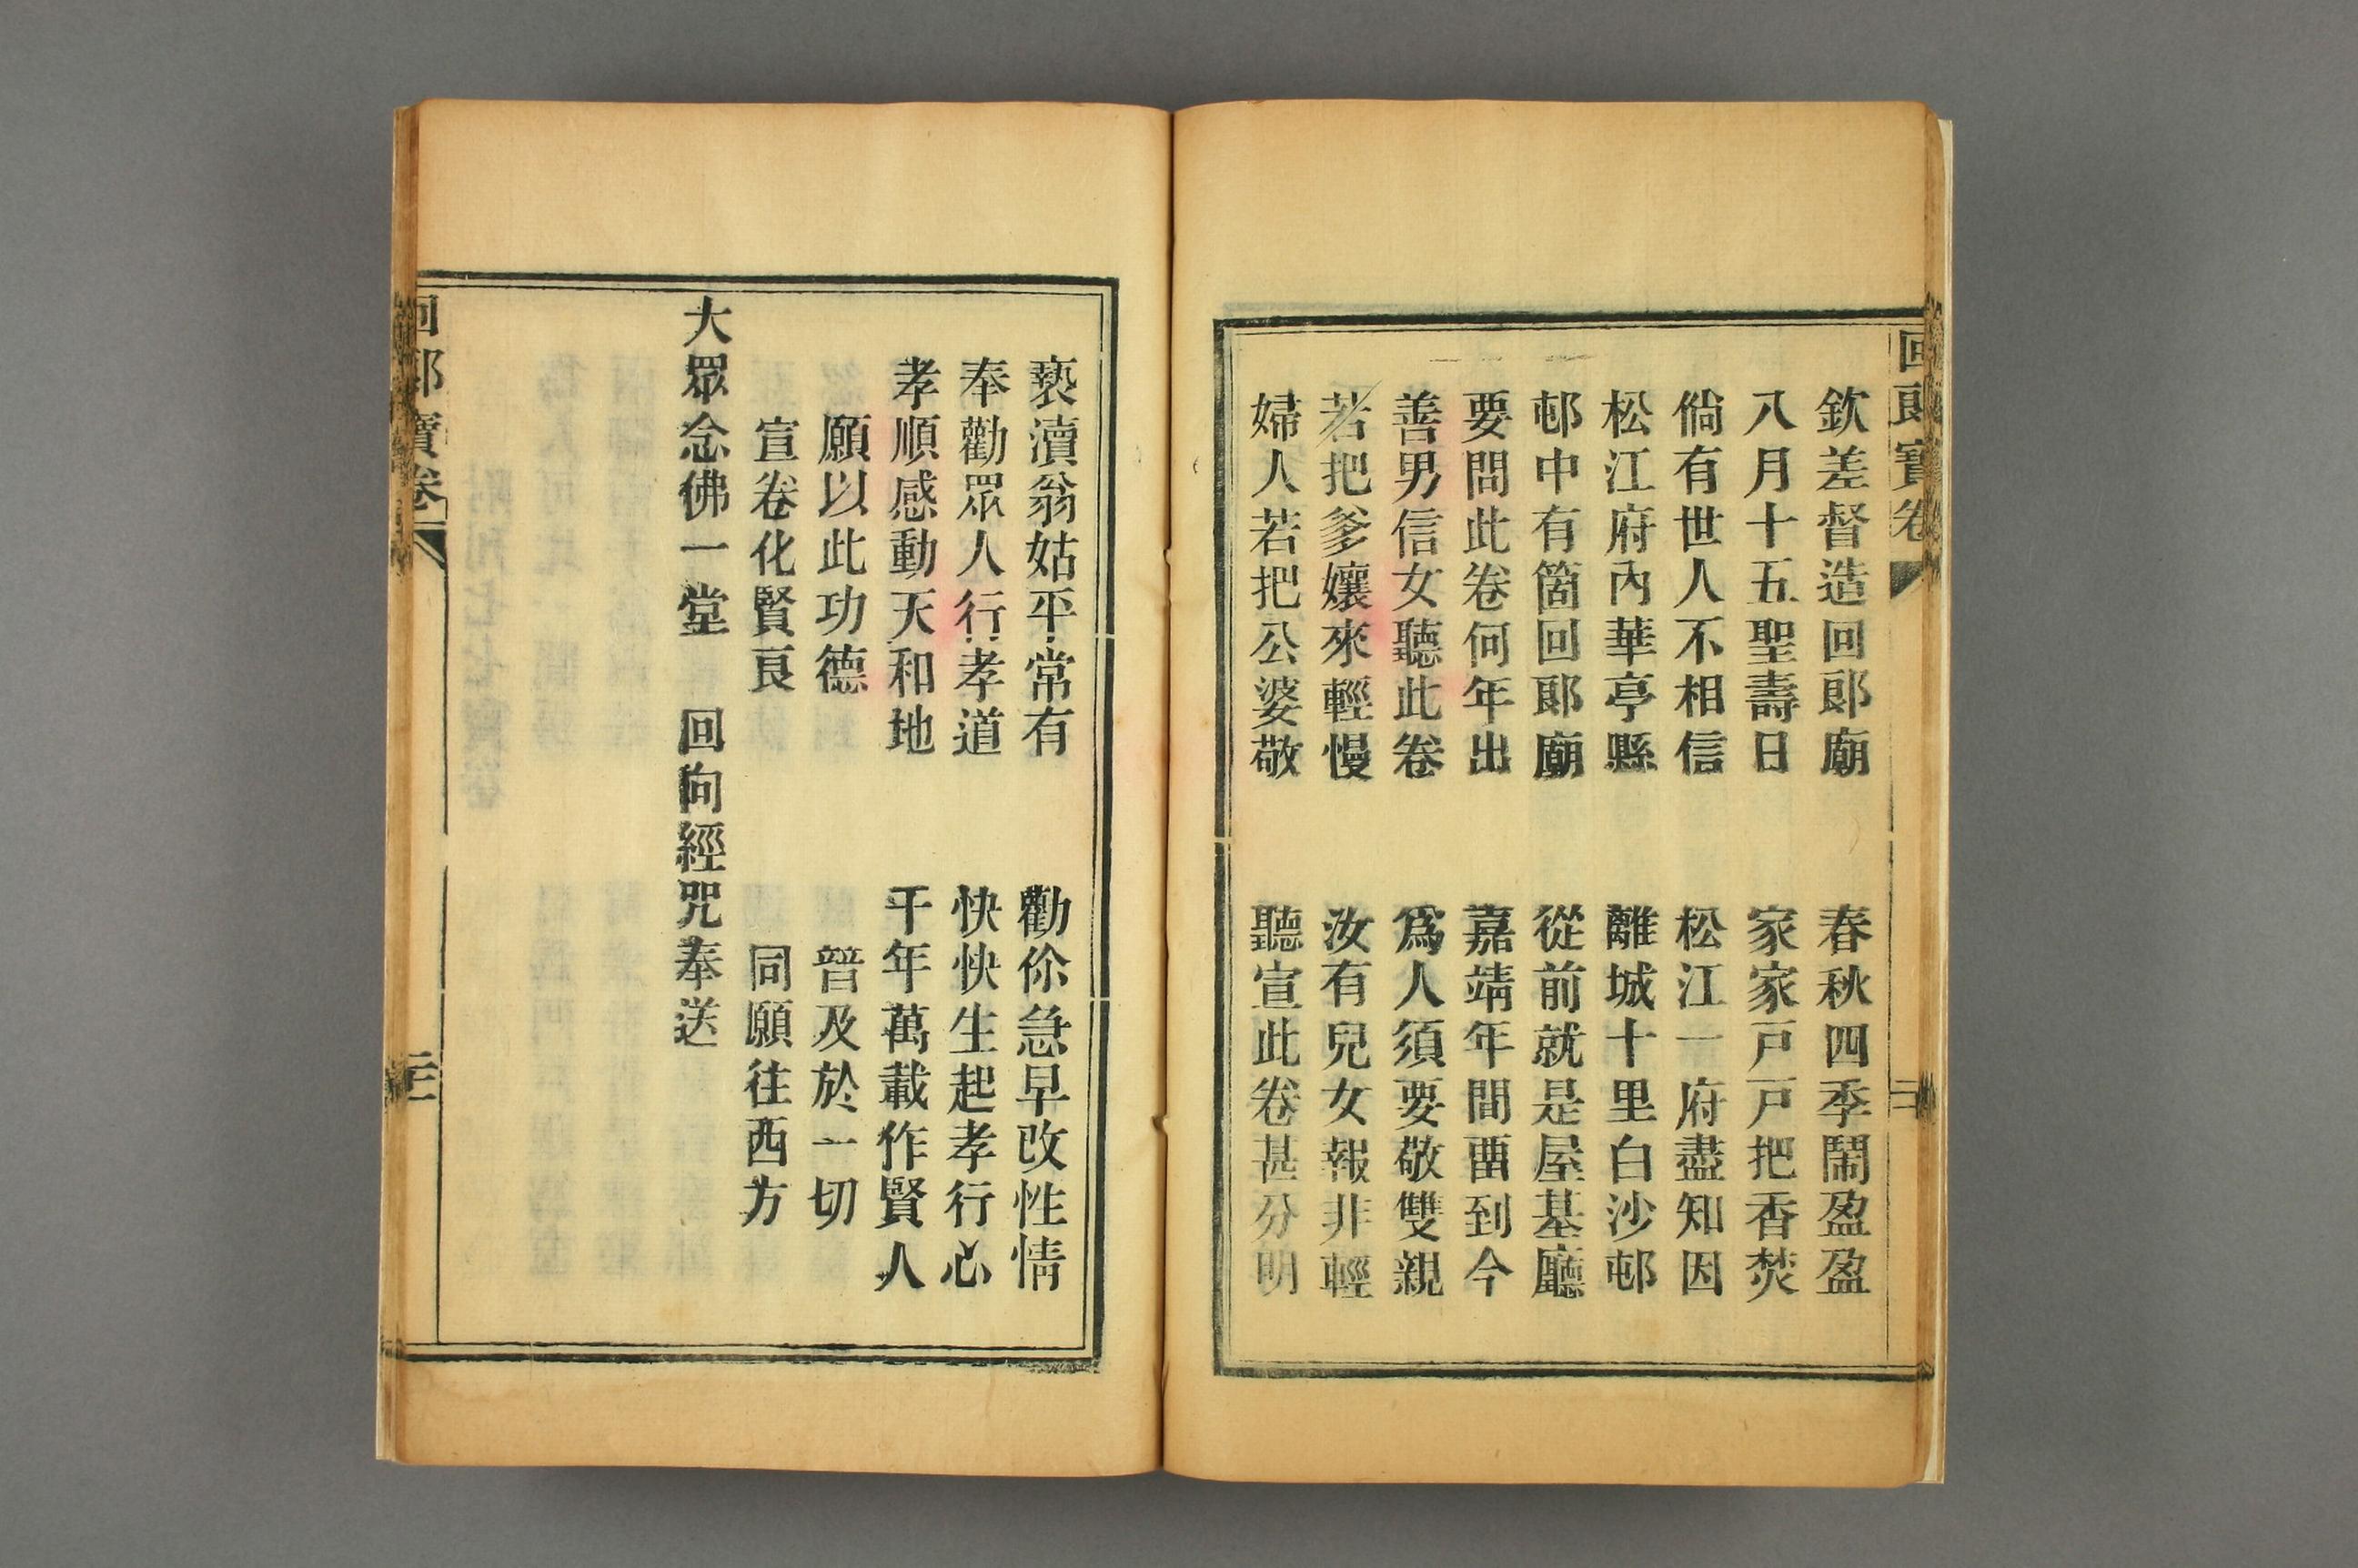 回郎寶卷
欽差督造回郎廟　春秋四季鬧盈盈
八月十五聖壽日　家家戸戸把香焚
倘有世人不相信　松江一府盡知因
松江府內華亭縣　離城十里白沙邨
邨中有箇回郎廟　從前就是屋基廳
要問此卷何年出　嘉靖年間畱到今
善男信女聽此卷　爲人須要敬雙親
若把爹孃來輕慢　汝有兒女報非輕
婦人若把公婆敬　聽宣此卷甚分明
褻瀆翁姑平常有　勸伱急早改性情
奉勸眾人行孝道　快快生起孝行心
孝順感動天和地　千年萬載作賢人
願以此功德　普及於一切
宣卷化賢良　同願往西方
大眾念佛一堂　回向經咒奉送
回郎寶卷